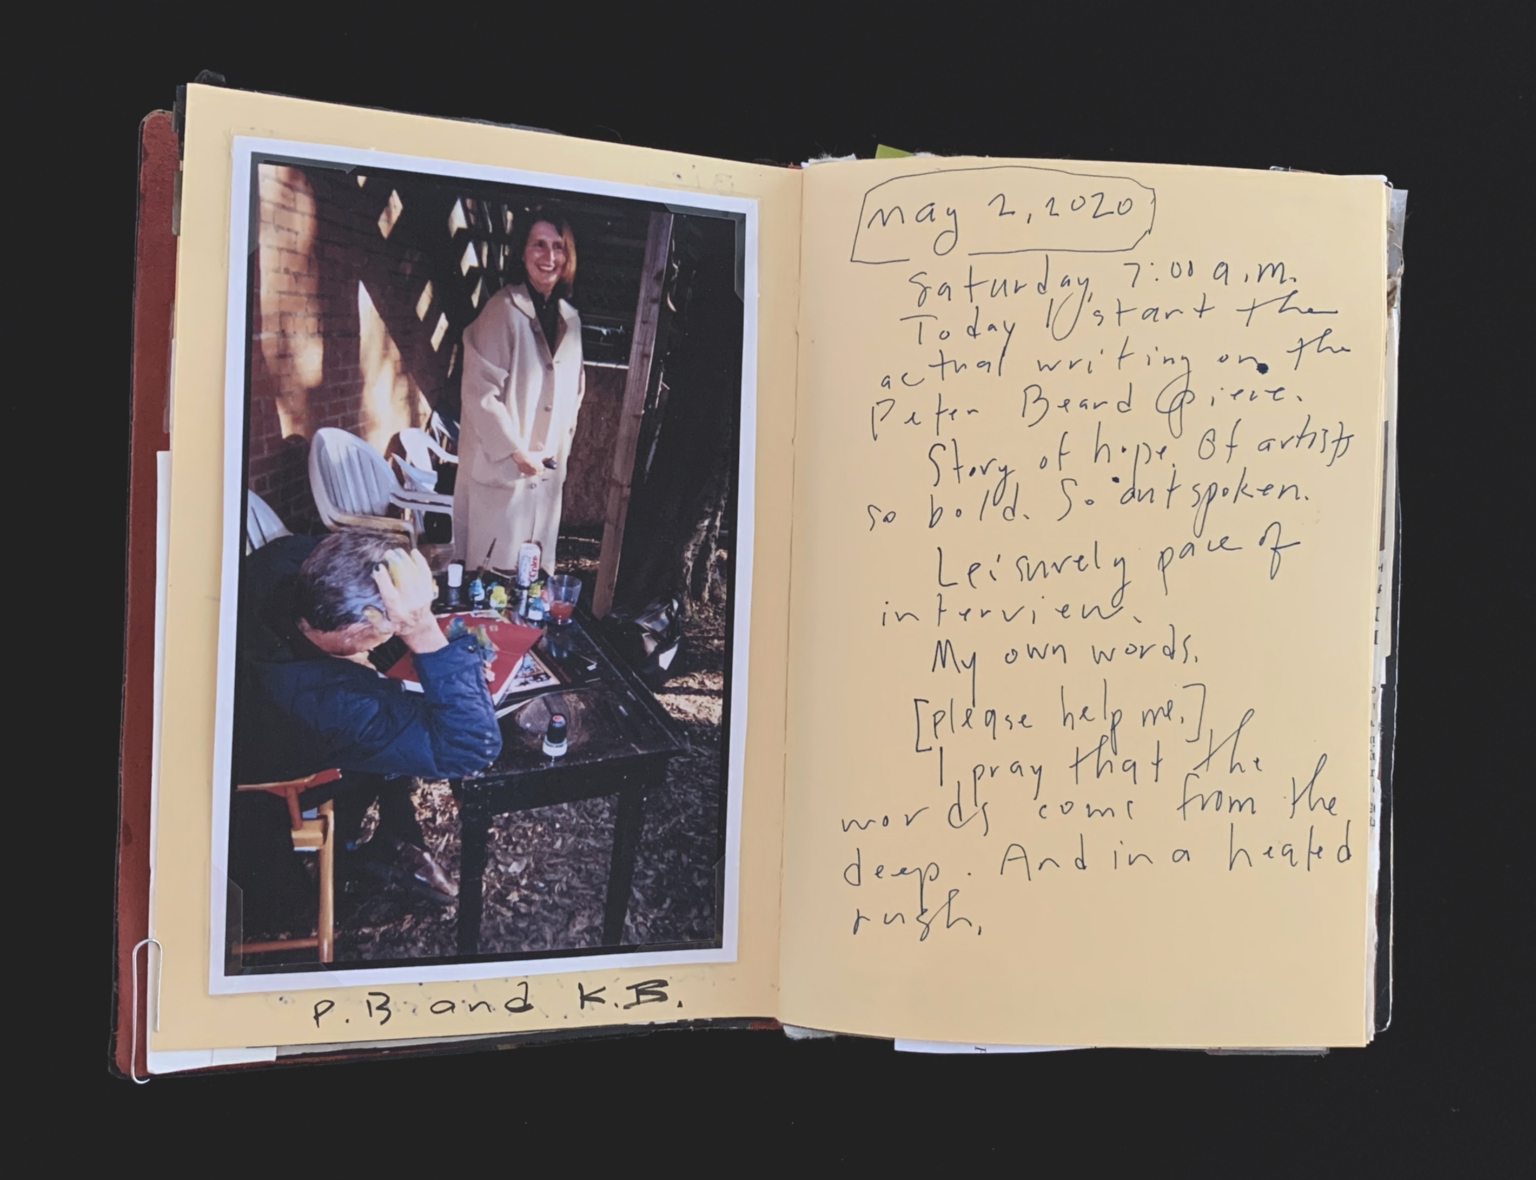 P. B and K.B.
May 2, 2020
Saturday, 7:00 a.m.
Today I start the
actual writing on the
Peter Beard piece.
Story of hope. Of artists
so bold. So outspoken.
Leisurely pace of
interview.
My own words.
[please help me.]
I pray that the
words come from the
deep. And in a heated
rush.
Coke